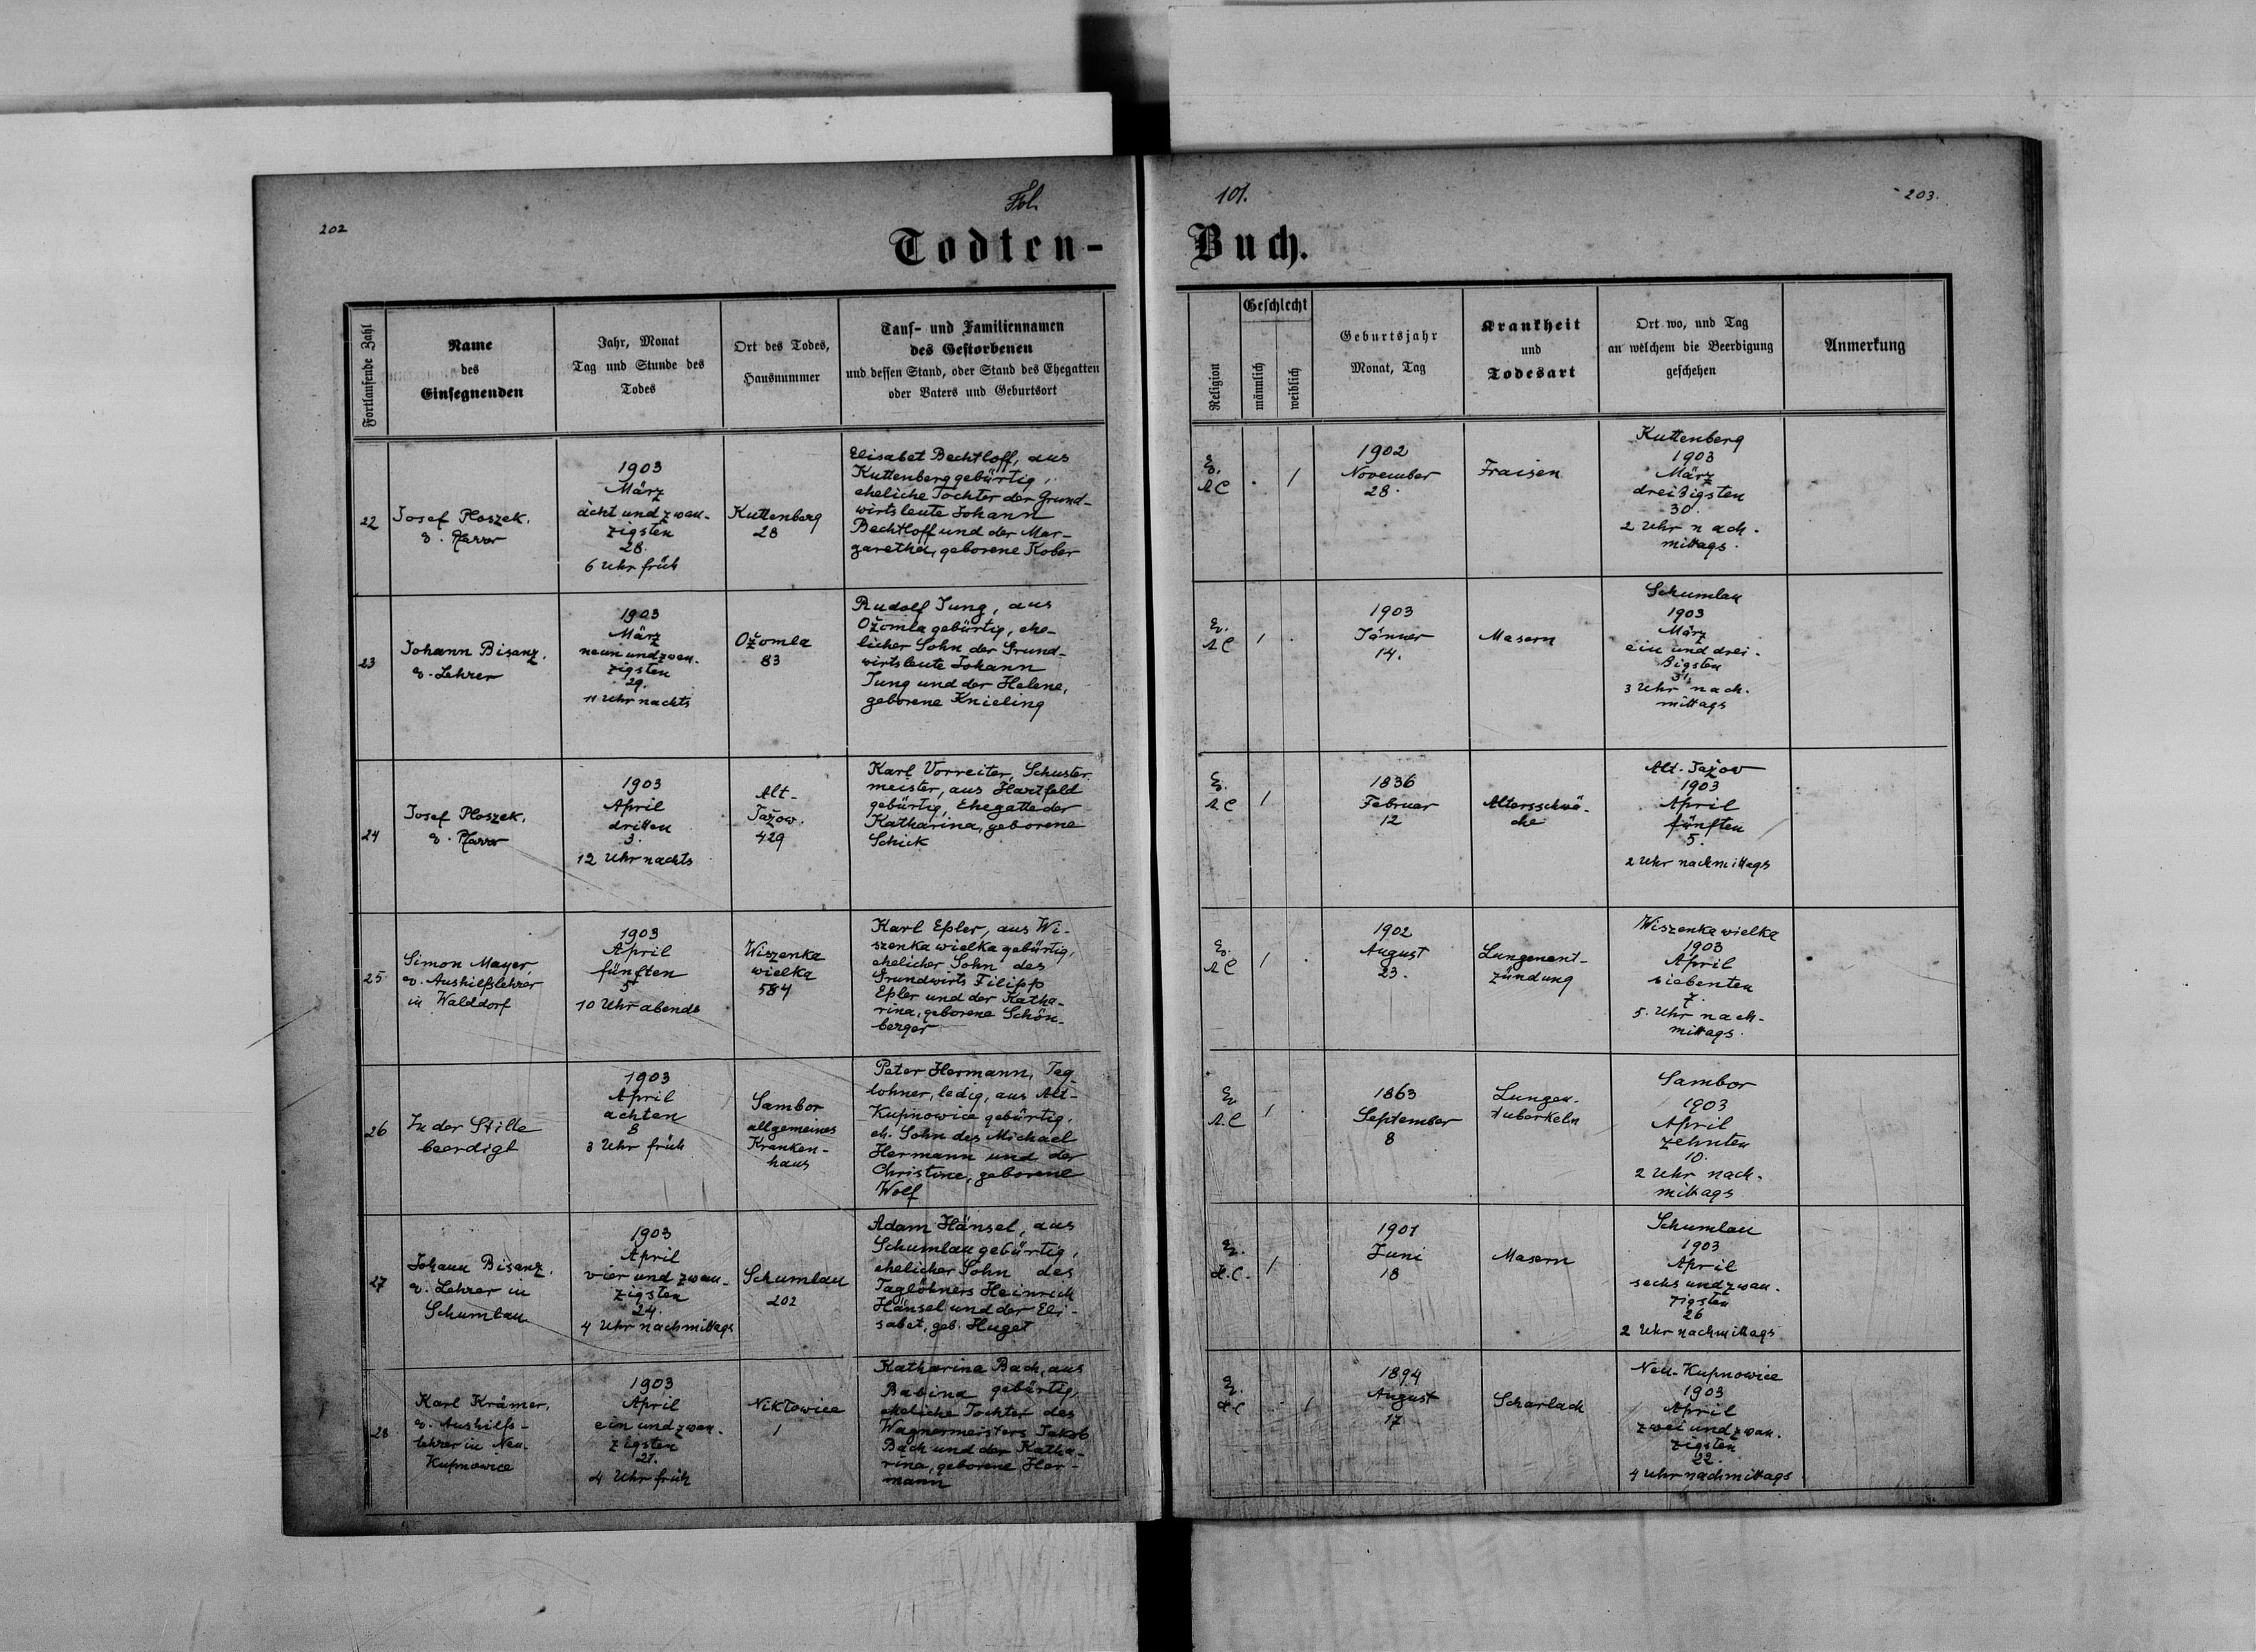 202
Fol.
101.
203.
Todten-
Buch.
Fortlaufende Zahl
Name
des
Einsegnenden
Jahr, Monat
Tag und Stunde des
Todes
Ort des Todes,
Hausnummer
Tauf- und Familiennamen
des Gestorbenen
und dessen Stand, oder Stand des Ehegatten
oder Vaters und Geburtsort
Religion
Geschlecht
männlich
weiblich
Geburtsjahr
Monat, Tag
Krankheit
und
Todesart
Ort wo, und Tag
an welchem die Beerdigung
geschehen
Anmerkung
22
Josef Ploszek,
e. Pfarrer
1903
März
acht und zwan-
zigsten
28.
6 Uhr früh
Kuttenberg
28
Elisabet Bechtloff, aus
Kuttenberg gebürtig,
eheliche Tochter der Grund-
wirtsleute Johann
Bechtloff und der Mar-
garetha, geborene Kober
Ev.
A C
.
1
1902
November
28.
Fraisen
Kuttenberg
1903
März
dreißigsten
30.
2 Uhr nach-
mittags.
23
Johann Bisanz,
ev. Lehrer
1903
März
neun und zwan-
zigsten
29.
11 Uhr nachts
Ožomla
83
Rudolf Jung, aus
Ožomla gebürtig, ehe-
licher Sohn der Grund-
wirtsleute Johann
Jung und der Helene,
geborene Knieling
Ev.
A C
1
.
1903
Jänner
14.
Masern
Schumlau
1903
März
ein und drei-
ßigsten
31.
3 Uhr nach-
mittags
24
Josef Ploszek,
e. Pfarrer
1903
April
dritten
3.
12 Uhr nachts
Alt-
Jažow.
429
Karl Vorreiter, Schuster-
meister, aus Hartfeld
gebürtig, Ehegatte der
Katharina, geborene
Schick
Ev.
A C
1
1836
Februar
12
Altersschwä-
che
Alt-Jažow
1903
April
fünften
5.
2 Uhr nachmittags
25
Simon Mayer,
ev. Aushilfslehrer
in Walddorf
1903
April
fünften
5.
10 Uhr abends
Wiszenka
wielka
584
Karl Epler, aus Wi-
szenka wielka gebürtig,
ehelicher Sohn des
Grundwirts Filipp
Epler und der Katha-
rina, geborene Schön-
berger
Ev.
A C
1
.
1902
August
23.
Lungenent-
zündung
Wiszenka wielka
1903
April
siebenten
7.
5. Uhr nach-
mittags.
26
In der Stille
beerdigt
1903
April
achten
8
3 Uhr früh
Sambor
allgemeines
Kranken-
haus
Peter Hermann, Tag-
lohner, ledig, aus Alt-
Kupnowice gebürtig,
eh. Sohn des Michael
Hermann und der
Christine, geborene
Wolf
Ev
A.C
1
.
1863
September
8
Lungen-
tuberkeln
Sambor
1903
April
zehnten
10.
2 Uhr nach-
mittags
27
Johann Bisanz,
ev. Lehrer in
Schumlau
1903
April
vier und zwan-
zigsten
24.
4 Uhr nachmittags
Schumlau
202
Adam Hänsel, aus
Schumlau gebürtig,
ehelicher Sohn des
Taglöhners Heinrich
Hänsel und der Eli-
sabet, geb. Huget
Ev.
H.C.
1
.
1901
Juni
18
Masern
Schumlau
1903
April
sechs und zwan-
zigsten
26
2 Uhr nachmittags
28
Karl Krämer,
ev. Aushilfs-
lehrer in Neu-
Kupnowice
1903
April
ein und zwan-
zigsten
21.
4 Uhr früh
Niklowice
1
Katharina Bach, aus
Babina gebürtig,
eheliche Tochter des
Wagnermeisters Jakob
Bach und der Katha-
rina, geborene Her-
mann
Ev.
H C
.
1
1894
August
17
Scharlach
Neu-Kupnowice
1903
April
zwei und zwan-
zigsten
22.
4 Uhr nachmittags